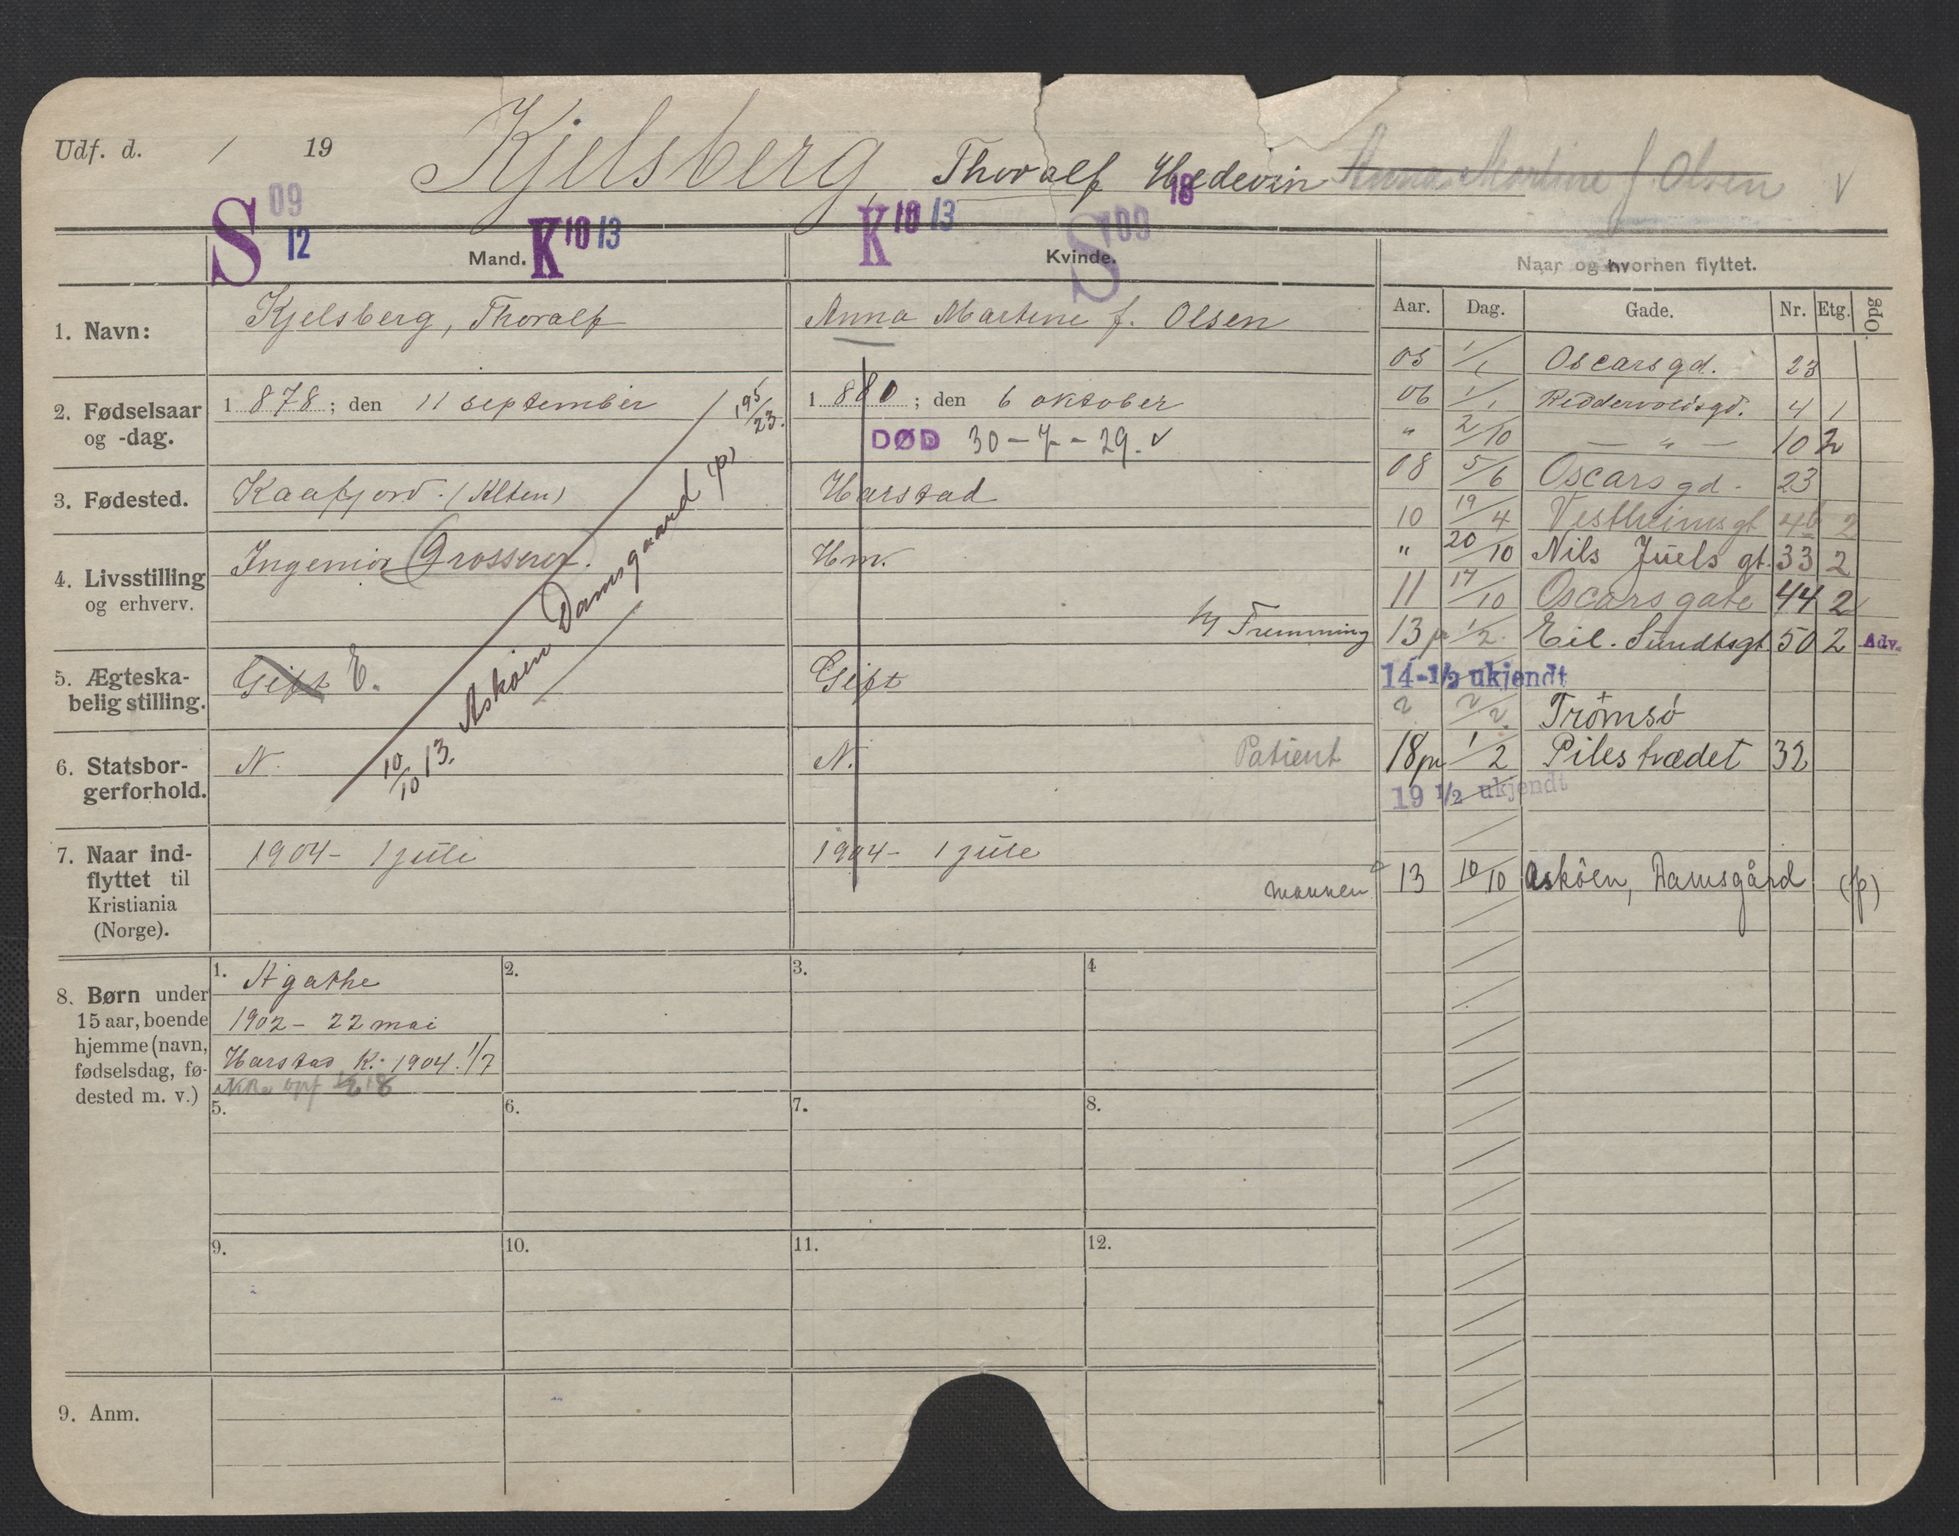 Udf. d. / 19 Kjelsberg, Thoralf Hedevin Anna Martine f. Olsen v
S 09 12 Mand. K 10 13 K 10 13 Kvinde. S 09 18 Naar og hvorhen flyttet.
Aar. Dag. Gade. Nr. Etg. Opg
1. Navn: Kjelsberg, Thoralf Anna Martine f. Olsen
2. Fødselsaar og -dag. 1 878 ; den 11 september 1 880 ; den 6 oktober
19 5/23.
DØD 30-7-29. v
3. Fødested. Kaafjord. (Alten) Harstad
4. Livsstilling og erhverv. Ingeniør (Grosserer). Hm.
5. Ægteskabelig stilling. Gift E. Gift
6. Statsborgerforhold. N. N.
10/10 13. Askøen Damsgaard (p)
7. Naar indflyttet til Kristiania (Norge). 1904 - 1 juli 1904 - 1 juli
05 1/1 Oscarsgd. 23
06 1/1 Riddervoldsgd. 4 1
" 2/10 — " — 10 2
08 5/6 Oscarsgd. 23
10 19/4 Vestheimsgt 4b 2
" 20/10 Nils Juels gt. 33 2
11 17/10 Oscarsgate 44 2
h/ Fremming 13 p 1/2. Eil. Sundtsgt 50 2 Adv.
14-1/2 ukjendt
2/2. Tromsø
Patient 18 pn 1/2 Pilestrædet 32
19 1/2 ukjendt
Mannen 13 10/10 Askøen, Damsgård (p)
8. Børn under 15 aar, boende hjemme (navn, fødselsdag, fødested m. v.)
1. Agathe
1902 - 22 mai
Harstad K. 1904. 1/7
2.
3.
4
5.
6.
7.
8.
9.
10.
11.
12.
9. Anm.